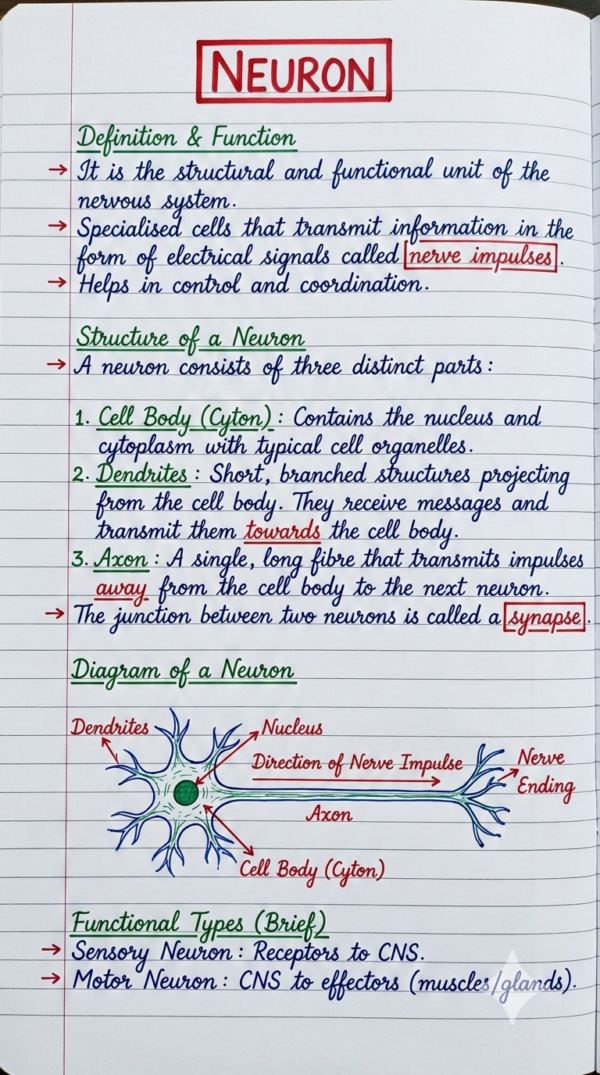 NEURON
Definition & Function
→ It is the structural and functional unit of the
nervous system.
→ Specialised cells that transmit information in the
form of electrical signals called nerve impulses.
→ Helps in control and coordination.
Structure of a Neuron
→ A neuron consists of three distinct parts:
1. Cell Body (Cyton): Contains the nucleus and
cytoplasm with typical cell organelles.
2. Dendrites: Short, branched structures projecting
from the cell body. They receive messages and
transmit them towards the cell body.
3. Axon: A single, long fibre that transmits impulses
away from the cell body to the next neuron.
→ The junction between two neurons is called a synapse.
Diagram of a Neuron
Dendrites
Nucleus
Direction of Nerve Impulse
Nerve
Ending
Axon
Cell Body (Cyton)
Functional Types (Brief)
→ Sensory Neuron: Receptors to CNS.
→ Motor Neuron: CNS to effectors (muscles/glands).